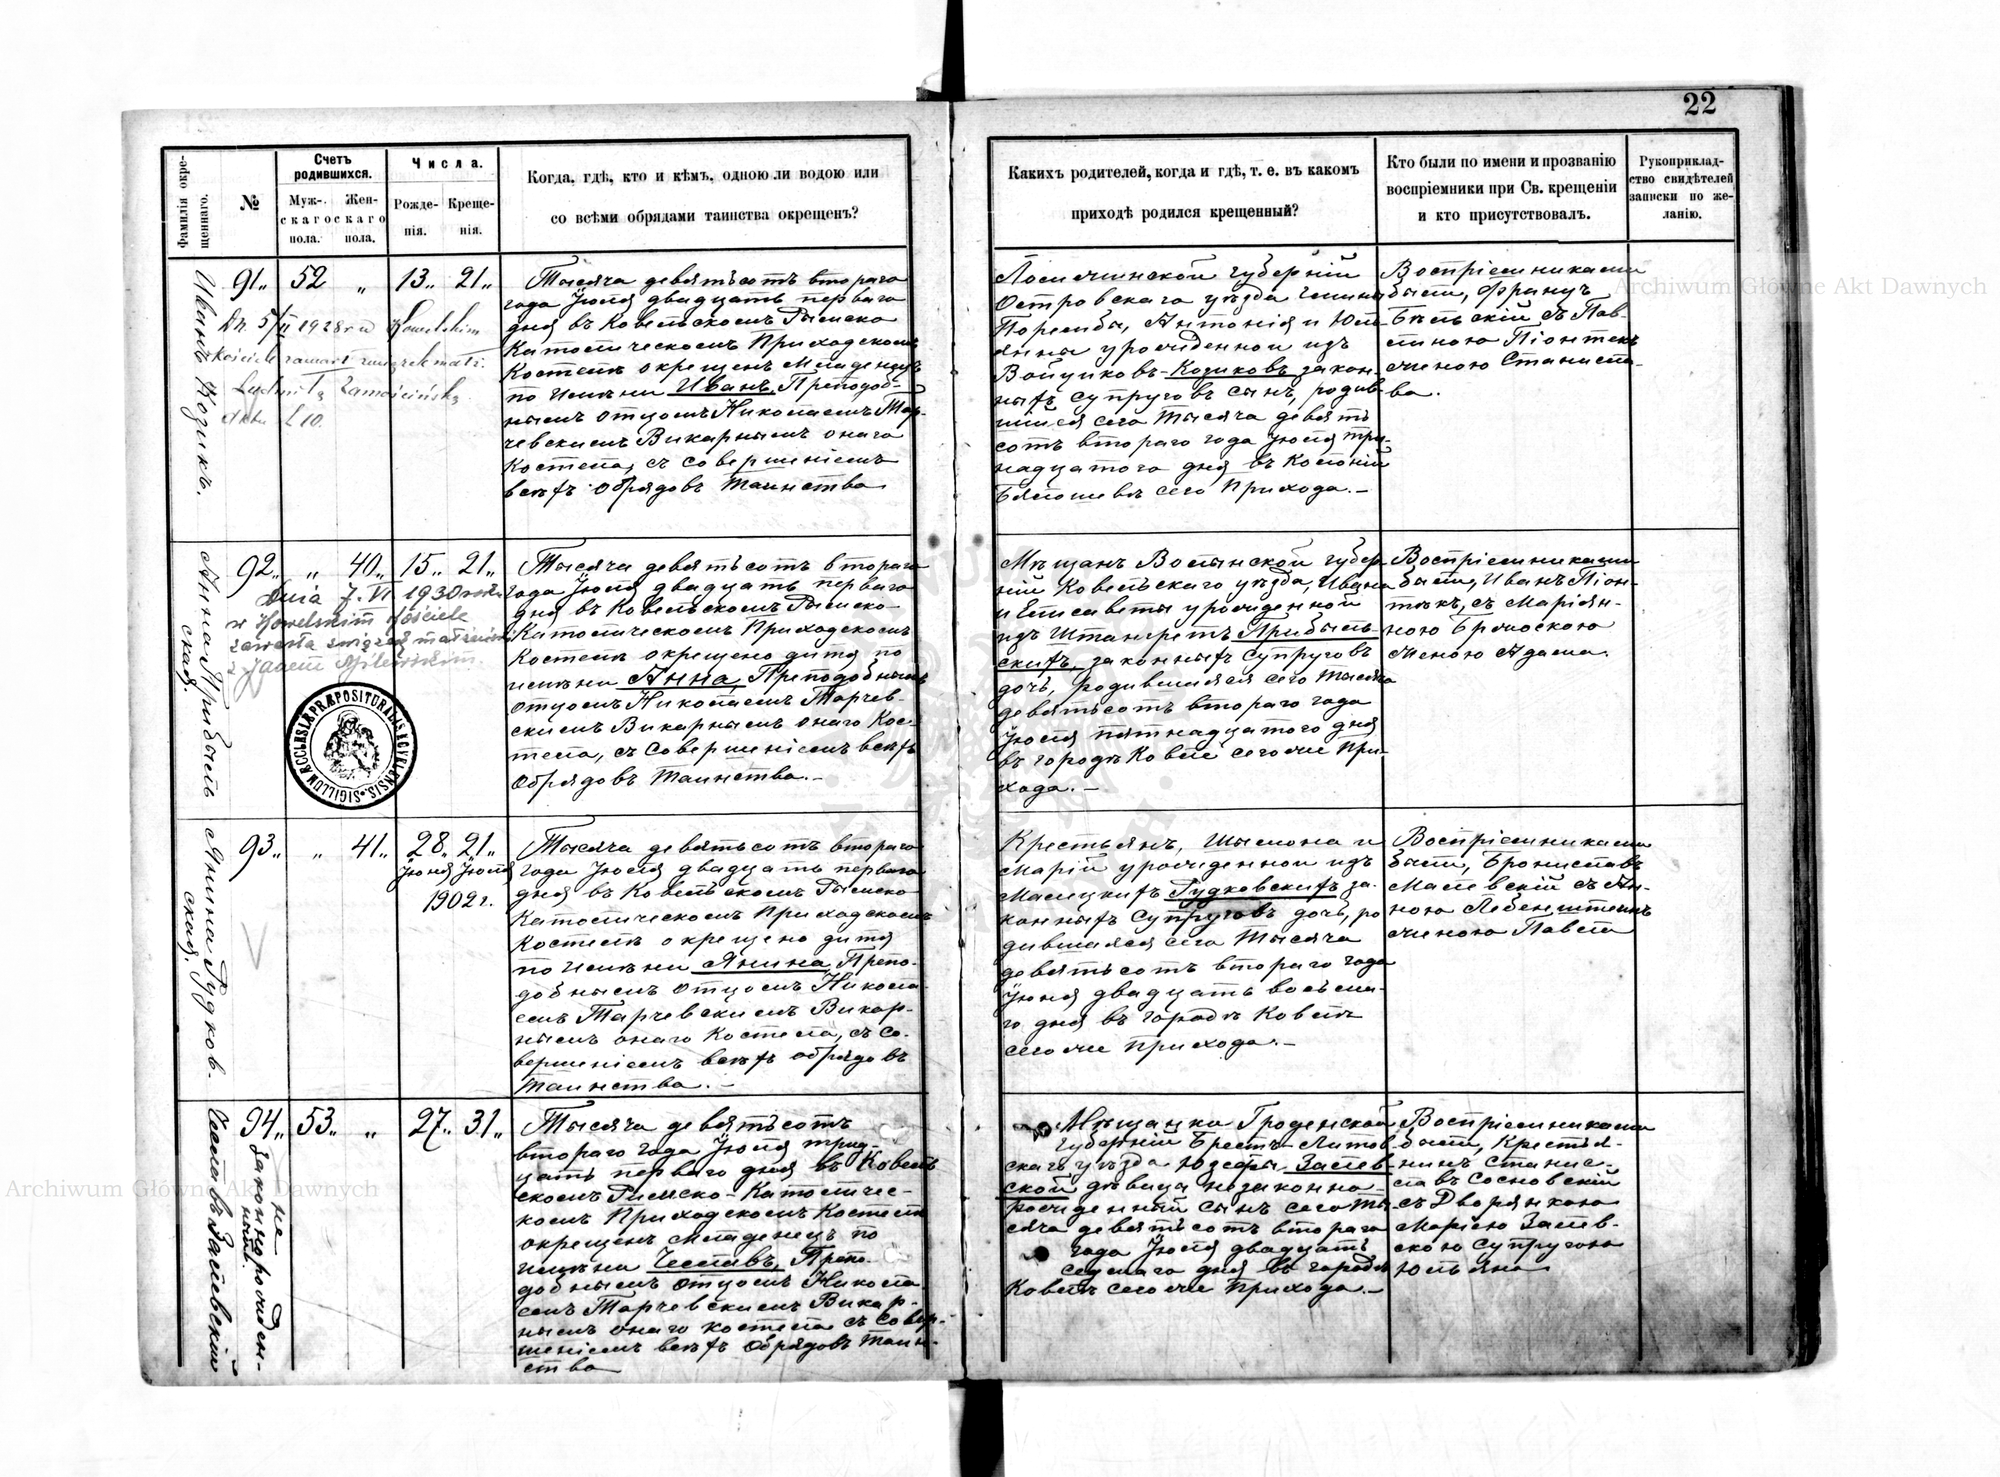 22
Фамилія окре-
щеннаго.
№
Счетъ
родившихся.
Муж-
скаго
пола.
Жен-
скаго
пола.
Числа.
Рожде-
нія.
Креще-
нія.
Когда, гдѣ, кто и кѣмъ, одною ли водою или
со всѣми обрядами таинства окрещенъ?
Какихъ родителей, когда и гдѣ, т. е. въ какомъ
приходѣ родился крещенный?
Кто были по имени и прозванію
воспріемники при Св. крещеніи
и кто присутствовалъ.
Рукоприклад-
ство свидѣтелей
записки по же-
ланію.
Иванъ Козикъ.
91.. 52 " 13.. 21..
Dn. 5/II 1928 r. w Kowelskim
Kościele zawarł związek małż.
Ludmiłą Zamościńską
Akt
Тысяча девятьсотъ втораго
года Іюля двадцать перваго
дня въ Ковельскомъ Римско
Католическомъ Приходскомъ
Костелѣ окрещенъ младенецъ
по имени Иванъ, Преподоб-
нымъ отцомъ Николаемъ Тар-
чевскимъ Викарнымъ онаго
Костела, съ совершеніемъ
всѣхъ обрядовъ таинства
Ломжинской губерніи
Островскаго уѣзда гмины
Порембы, Антонія и Юлі-
янны урожденной изъ
Войциковъ Козиковъ закон-
ныхъ супруговъ сынъ, родив-
шійся сего тысяча девять
сотъ втораго года Іюля три-
надцатого дня въ Колоніи
сего Прихода.—
Воспріемниками
были, Францъ
Бѣльскій съ Пав-
линою Піонтекъ
женою Станисла-
ва.
Анна Прибыль-
ская.
92.. " 40.. 15.. 21..
Dnia 7.VI 1930 roku
w Kowelskim Kościele
zawarła związek małżeński
z Janem
SIGILLUM ECCLESIÆ PRÆPOSITURALIS
Тысяча девятьсотъ втораго
года Іюля двадцать перваго
дня въ Ковельскомъ Римско-
Католическомъ Приходскомъ
Костелѣ окрещено дитя по
имени Анна, Преподобнымъ
отцомъ Николаемъ Тарчев-
скимъ Викарнымъ онаго Кос-
тела, съ совершеніемъ всѣхъ
обрядовъ таинства.—
Мѣщанъ Волынской губер-
ніи Ковельскаго уѣзда, Ивана
и Елисаветы урожденной
изъ Штангретъ Прибыль-
скихъ, законныхъ супруговъ
дочь, родившаяся сего тысяча
девятьсотъ втораго года
Іюля пятнадцатого дня
въ городѣ Ковлѣ сего же При-
хода.—
Воспріемниками
были, Иванъ Піон-
текъ, съ Маріян-
ною
женою Адама.
Янина Рудков-
ская.
93.. " 41.. 28.. 21..
Іюня Іюля
1902 г.
Тысяча девятьсотъ втораго
года Іюля двадцать перваго
дня въ Ковельскомъ Римско-
Католическомъ Приходскомъ
Костелѣ окрещено дитя
по имени Янина, Препо-
добнымъ отцомъ Никола-
емъ Тарчевскимъ Викар-
нымъ онаго Костела, съ со-
вершеніемъ всѣхъ обрядовъ
таинства.—
Крестьянъ, Шымона и
Маріи урожденной изъ
Малицкихъ Рудковскихъ за-
конныхъ супруговъ дочь, ро
дившаяся сего тысяча
девятьсотъ втораго года
Іюня двадцать восьма-
го дня въ городѣ Ковлѣ
сего же прихода.—
Воспріемниками
были, Брониславъ
Малевскій съ Ан-
ною Лебенштейнъ
женою Павла
Чеславъ Залевскій
не
законнорожден-
ный.
94.. 53.. " 27.. 31..
Тысяча девятьсотъ
втораго года Іюля трид-
цать перваго дня въ Ковель
скомъ Римско-Католичес-
комъ Приходскомъ Костелѣ
окрещенъ младенецъ по
имени Чеславъ, Препо-
добнымъ отцомъ Никола
емъ Тарчевскимъ Викар-
нымъ онаго костела съ совер-
шеніемъ всѣхъ обрядовъ таин-
ства
Мѣщанки Гродненской
губерніи Брестъ-Литов
скаго уѣзда Юзефы Залев
ской дѣвицы незаконно-
рожденный сынъ сего ты
сяча девятьсотъ втораго
года Іюля двадцать
седьмаго дня въ городѣ
Ковлѣ сего же прихода.—
Воспріемниками
были, Крестья-
нинъ Станис-
лавъ Сосновскій
съ Дворянкою
Маріею Залев-
скою супругою
Юльяна
Archiwum Główne Akt Dawnych
Archiwum Główne Akt Dawnych